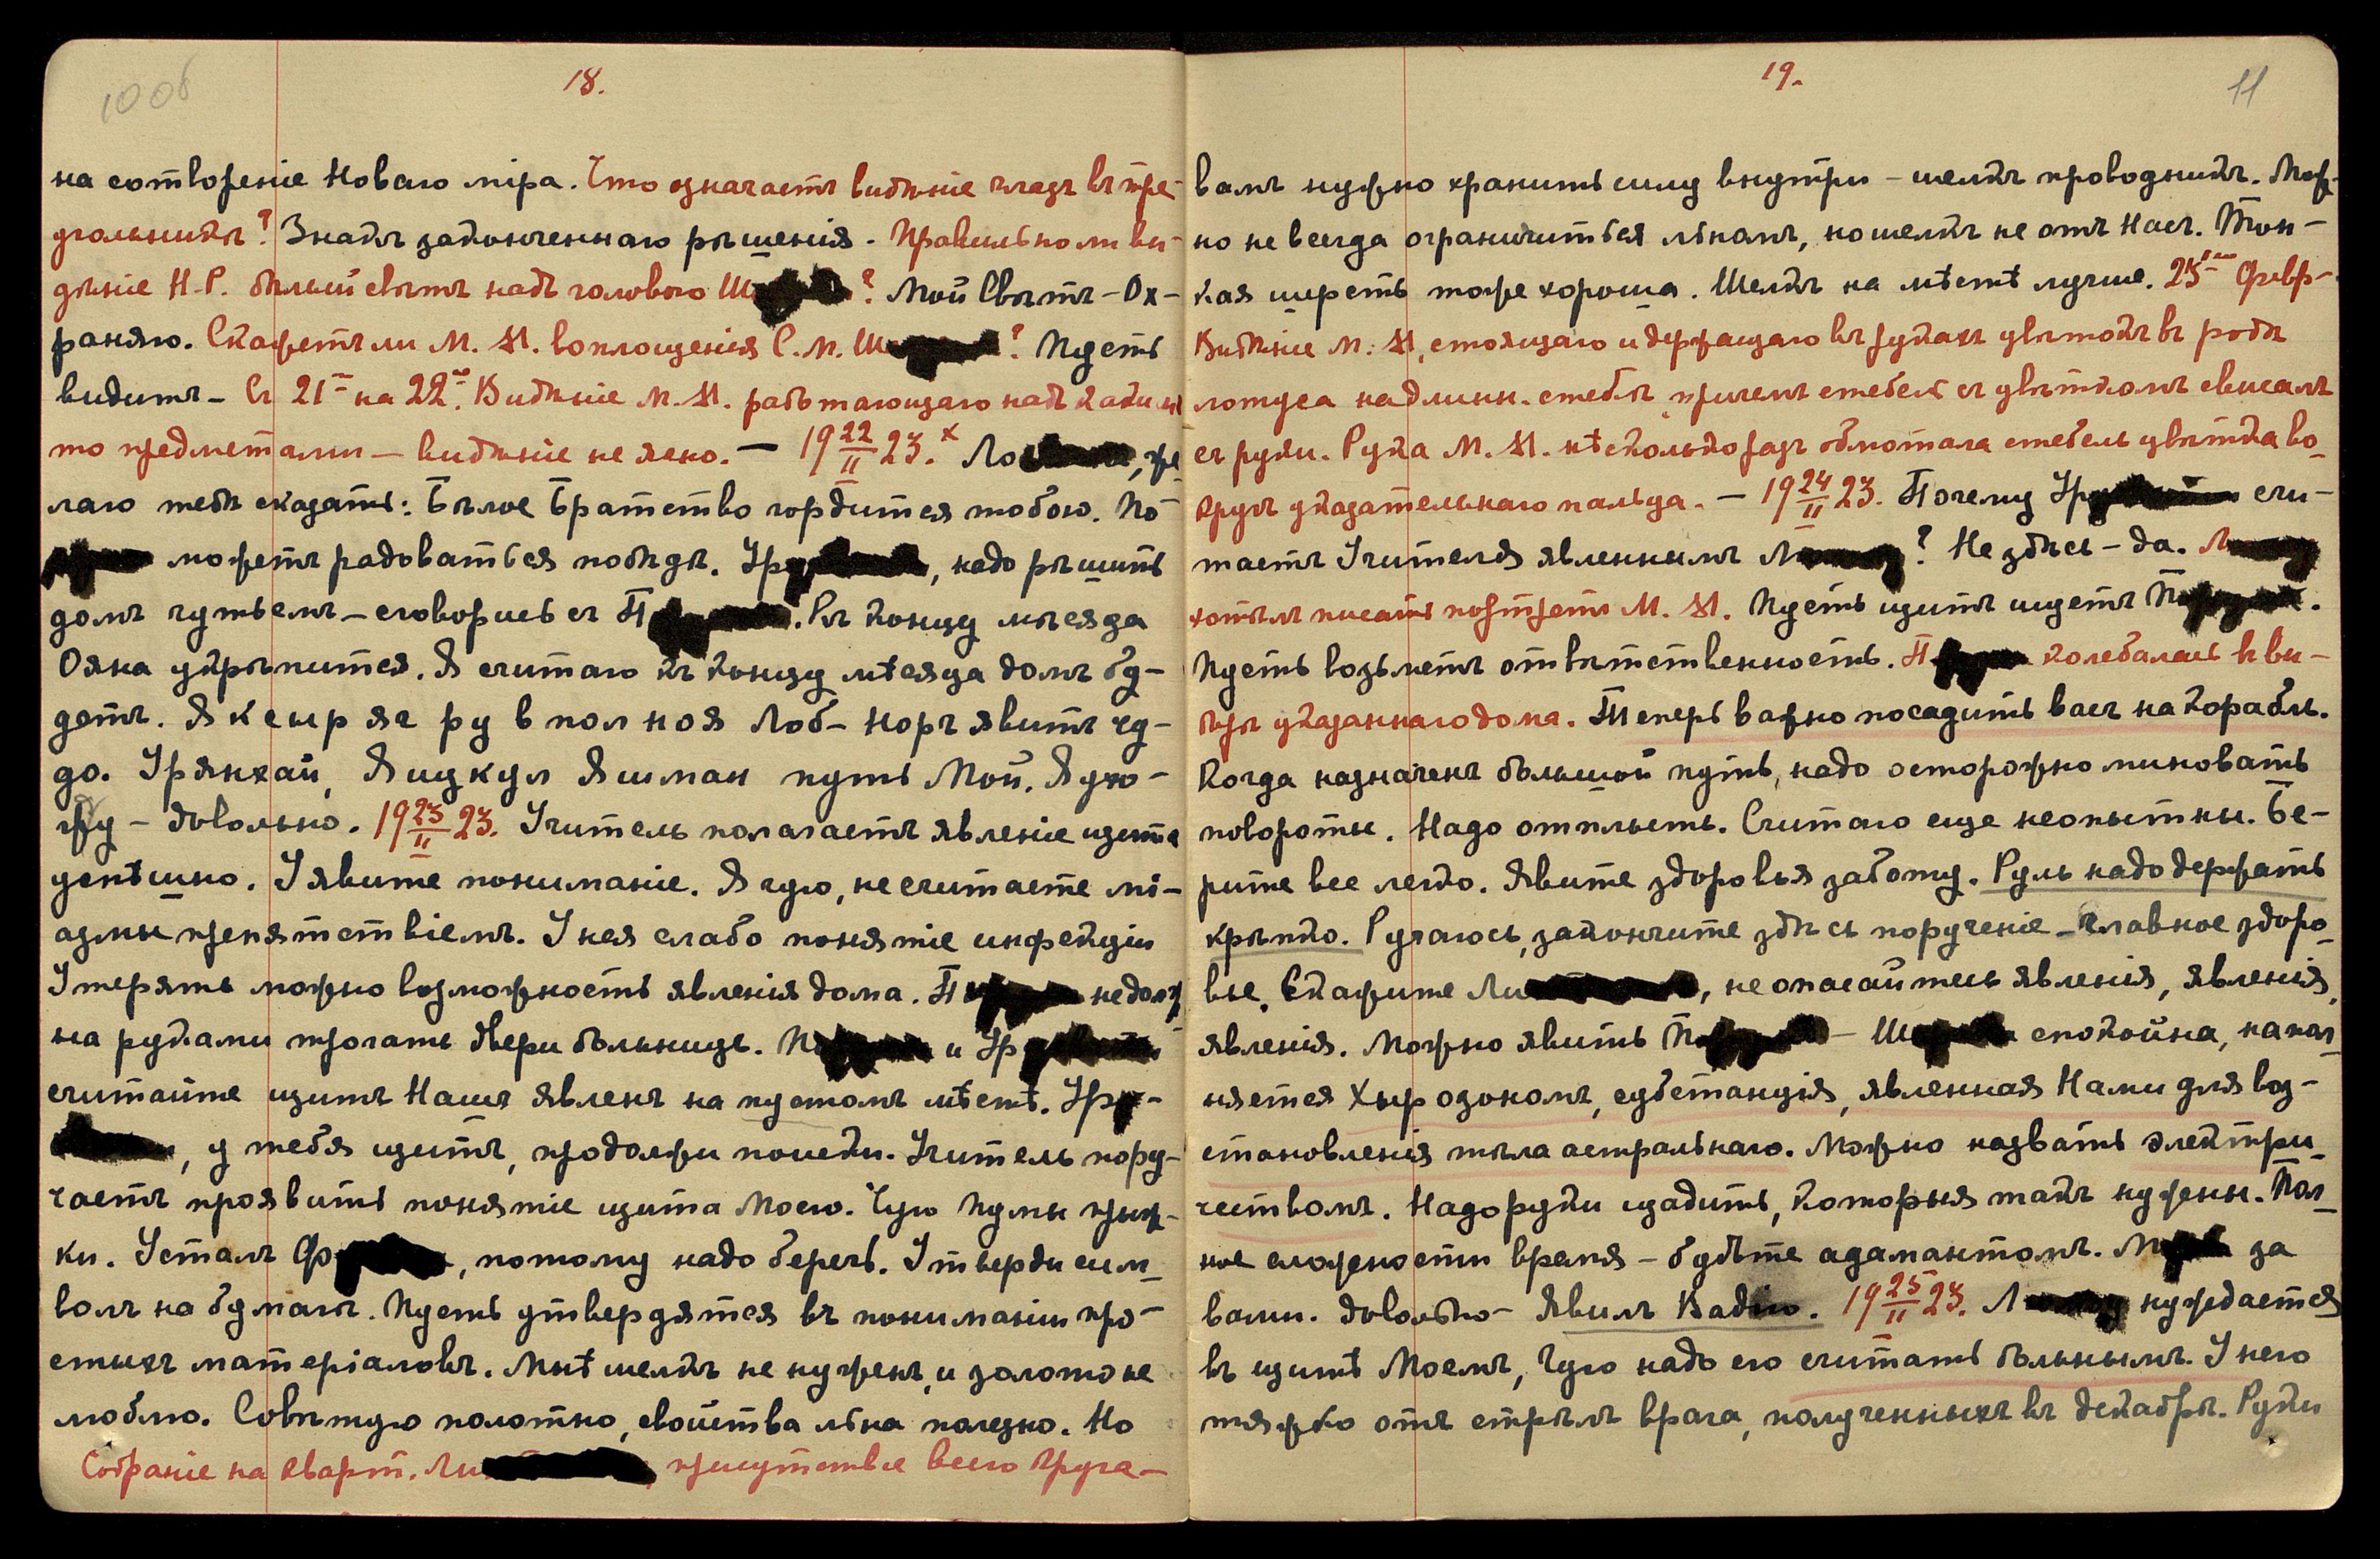 10 об
18.
на сотворенiе Новаго мiра. Что означаетъ видѣнiе глазъ въ тре-
угольникѣ? Знакъ законченнаго рѣшенiя. Правильно ли ви-
дѣнiе Н.Р. бѣлый свѣтъ надъ головою Ш? Мой Свѣтъ - Ох-
раняю. Скажетъ ли М. М. воплощенiя С. М. Ш? Пусть
видитъ - Съ 21го на 22ое. Видѣнiе М. М. работающаго надъ какими
то предметами - видѣнiе не ясно. - 19 22/II 23.x Ло, же
лаю тебѣ сказать: Бѣлое Братство гордится тобою. По
можетъ радоваться побѣдѣ. Ур, надо рѣшить
домъ чутьемъ - сговорись съ П. Къ концу мѣсяца
Ояна укрѣпится. Я считаю къ концу мѣсяца домъ бу-
детъ. Я к сыр яг ру в пол ноя Лоб-норъ явитъ чу-
до. Урянхай, Я шу кул Яшман путь Мой. Я ухо-
жу - довольно. 19 23/II 23. Учитель полагаетъ явленiе щита
успѣшно. Уявите пониманiе. Я чую, не считаете мi-
азмы препятствiемъ. У нея слабо понятiе инфекцiи
Утерять можно возможность явленiя дома. П не долж
на руками трогать двери больницъ. П и Ур
считайте щитъ Нашъ явленъ на пустомъ мѣстѣ. Ур-
, у тебя щитъ, продолжи поиски. Учитель пору-
чаетъ проявить понятiе щита Моего. Чую Пумы прыж-
ки. Усталъ Ф, потому надо беречь. Утверди сим-
волъ на бумагѣ. Пусть утвердятся въ пониманiи про-
стыхъ матерiаловъ. Мнѣ шелкъ не нуженъ, и золото не
люблю. Совѣтую полотно, свойства льна полезно. Но
Собранiе на кварт. Ли присутствiе всего круга -
19.
11
вамъ нужно хранить силу внутри - шелкъ проводникъ. Мож-
но не всегда ограничиться льномъ, но шелкъ не отъ Насъ. Тон-
кая шерсть тоже хороша. Шелкъ на мѣстѣ лучше. 23го Февр-
Видѣнiе М. М, стоящаго и держащаго въ рукахъ цвѣтокъ въ родѣ
лотуса на длинн. стеблѣ, причемъ стебель съ цвѣткомъ свисалъ
съ руки. Рука М. М. нѣсколько разъ обмотала стебель цвѣтка во-
кругъ указательнаго пальца. - 19 24/II 23. Почему Ур счи-
таетъ Учителя явленнымъ Л? Не здѣсь - да. Л
хотѣлъ писать портретъ М. М. Пусть щитъ ищетъ П.
Пусть возьметъ отвѣтственность. П колебалась въ вы-
борѣ указаннаго дома. Теперь важно посадить васъ на корабль.
Когда назначенъ большой путь, надо осторожно миновать
повороты. Надо отплыть. Считаю еще неопытны. Бе-
рите все легко. Явите здоровья заботу. Руль надо держать
крѣпко. Ручаюсь, закончите здѣсь порученiе - главное здоро-
вье. Скажите Ли, не опасайтесь явленiя, явленiя,
явленiя. Можно явить П - Ш спокойна, напол-
няется Хыр озономъ, субстанцiя, явленная Нами для воз-
становленiя тѣла астральнаго. Можно назвать электри-
чествомъ. Надо руки щадить, которыя такъ нужны. Пол-
ное сложности время - будьте адамантомъ. М за
вами. довольно - Явилъ Кадiю. 19 25/II 23. Л нуждается
въ щитѣ Моемъ, Чую надо его считать больнымъ. У него
тяжко отъ стрѣлъ врага, полученныхъ въ декабрѣ. Руки